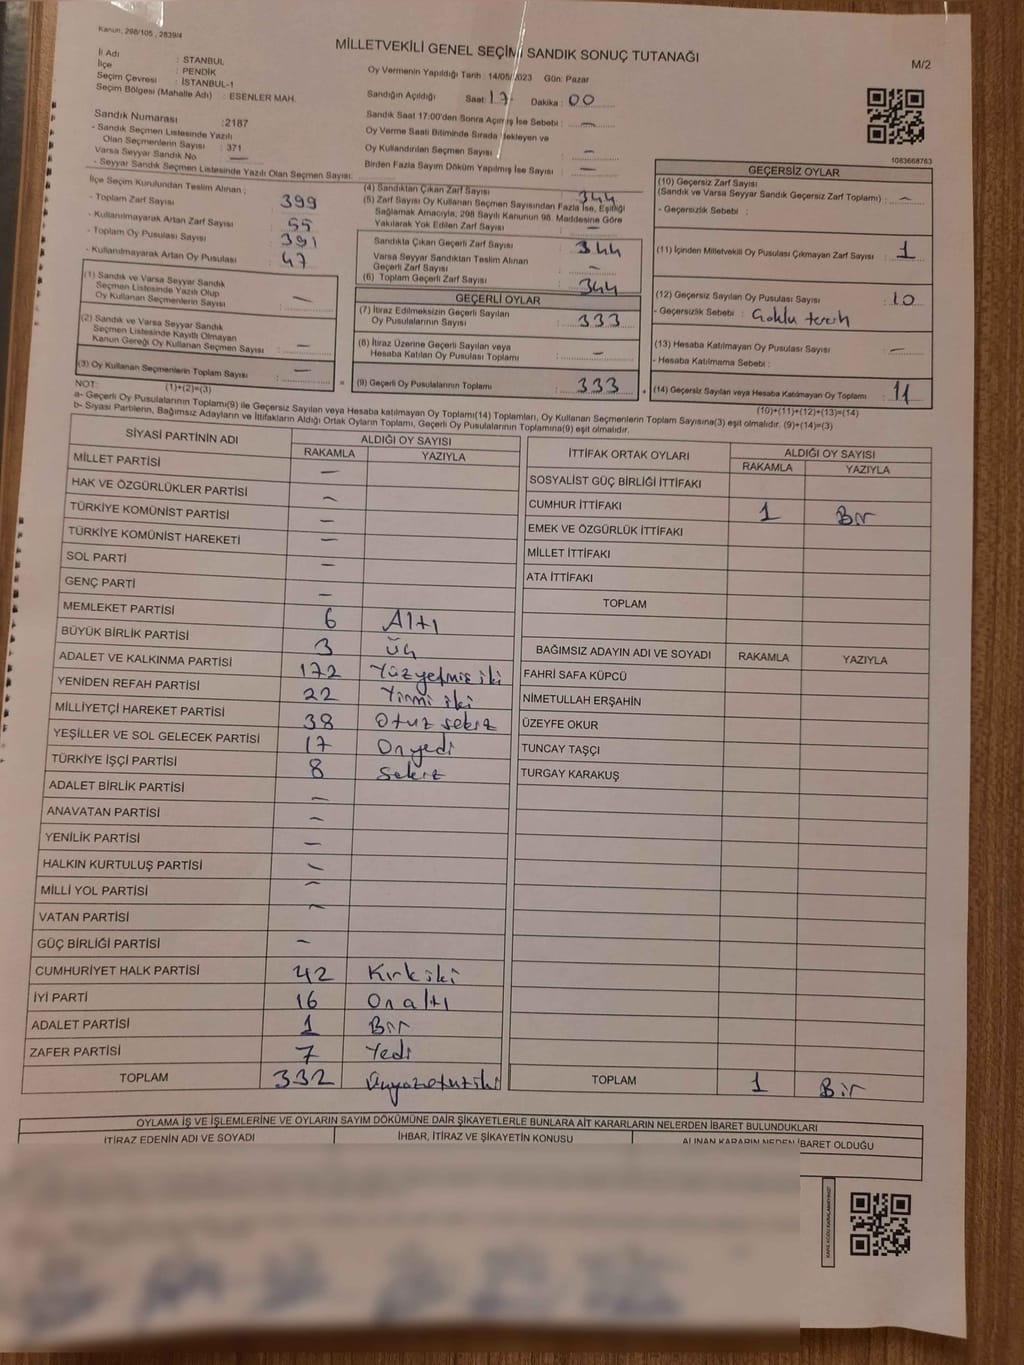 Kanun, 298/105, 2839/4
MİLLETVEKİLİ GENEL SEÇİMİ SANDIK SONUÇ TUTANAĞI
M/2
İl Adı : STANBUL
İlçe : PENDİK
Seçim Çevresi : İSTANBUL-1
Seçim Bölgesi (Mahalle Adı) : ESENLER MAH.
Sandık Numarası :2187
- Sandık Seçmen Listesinde Yazılı
Olan Seçmenlerin Sayısı : 371
Varsa Seyyar Sandık No —
- Seyyar Sandık Seçmen Listesinde Yazılı Olan Seçmen Sayısı:
İlçe Seçim Kurulundan Teslim Alınan ;
- Toplam Zarf Sayısı 399
- Kullanılmayarak Artan Zarf Sayısı 55
- Toplam Oy Pusulası Sayısı 391
- Kullanılmayarak Artan Oy Pusulası 47
(1) Sandık ve Varsa Seyyar Sandık
Seçmen Listesinde Yazılı Olup
Oy Kullanan Seçmenlerin Sayısı : —
(2) Sandık ve Varsa Seyyar Sandık
Seçmen Listesinde Kayıtlı Olmayan
Kanun Gereği Oy Kullanan Seçmen Sayısı : —
(3) Oy Kullanan Seçmenlerin Toplam Sayısı : —
(1)+(2)=(3)
Oy Vermenin Yapıldığı Tarih : 14/05/2023 Gün: Pazar
Sandığın Açıldığı Saat: 17 Dakika : 00
Sandık Saat 17:00'den Sonra Açımış İse Sebebi : —
Oy Verme Saati Bitiminde Sırada Bekleyen ve
Oy Kullandırılan Seçmen Sayısı : —
Birden Fazla Sayım Döküm Yapılmış İse Sayısı : —
(4) Sandıktan Çıkan Zarf Sayısı : 344
(5) Zarf Sayısı Oy Kullanan Seçmen Sayısından Fazla İse, Eşitliği
Sağlamak Amacıyla, 298 Sayılı Kanunun 98. Maddesine Göre
Yakılarak Yok Edilen Zarf Sayısı : —
Sandıkta Çıkan Geçerli Zarf Sayısı : 344
Varsa Seyyar Sandıktan Teslim Alınan
Geçerli Zarf Sayısı : —
(6) Toplam Geçerli Zarf Sayısı : 344
GEÇERLİ OYLAR
(7) İtiraz Edilmeksizin Geçerli Sayılan
Oy Pusulalarının Sayısı : 333
(8) İtiraz Üzerine Geçerli Sayılan veya
Hesaba Katılan Oy Pusulası Toplamı : —
= (9) Geçerli Oy Pusulalarının Toplamı : 333 +
1083668763
GEÇERSİZ OYLAR
(10) Geçersiz Zarf Sayısı
(Sandık ve Varsa Seyyar Sandık Geçersiz Zarf Toplamı) : —
- Geçersizlik Sebebi :
(11) İçinden Milletvekili Oy Pusulası Çıkmayan Zarf Sayısı : 1
(12) Geçersiz Sayılan Oy Pusulası Sayısı : 10
- Geçersizlik Sebebi : Çoklu tercih
(13) Hesaba Katılmayan Oy Pusulası Sayısı : —
- Hesaba Katılmama Sebebi :
(14) Geçersiz Sayılan veya Hesaba Katılmayan Oy Toplamı : 11
(10)+(11)+(12)+(13)=(14)
NOT:
a- Geçerli Oy Pusulalarının Toplamı(9) ile Geçersiz Sayılan veya Hesaba katılmayan Oy Toplamı(14) Toplamları, Oy Kullanan Seçmenlerin Toplam Sayısına(3) eşit olmalıdır. (9)+(14)=(3)
b- Siyasi Partilerin, Bağımsız Adayların ve İttifakların Aldığı Ortak Oyların Toplamı, Geçerli Oy Pusulalarının Toplamına(9) eşit olmalıdır.
SİYASİ PARTİNİN ADI ALDIĞI OY SAYISI
RAKAMLA YAZIYLA
MİLLET PARTİSİ —
HAK VE ÖZGÜRLÜKLER PARTİSİ —
TÜRKİYE KOMÜNİST PARTİSİ —
TÜRKİYE KOMÜNİST HAREKETİ —
SOL PARTİ —
GENÇ PARTİ —
MEMLEKET PARTİSİ 6 Altı
BÜYÜK BİRLİK PARTİSİ 3 Üç
ADALET VE KALKINMA PARTİSİ 172 Yüzyetmiş iki
YENİDEN REFAH PARTİSİ 22 Yirmi iki
MİLLİYETÇİ HAREKET PARTİSİ 38 Otuz sekiz
YEŞİLLER VE SOL GELECEK PARTİSİ 17 Onyedi
TÜRKİYE İŞÇİ PARTİSİ 8 Sekiz
ADALET BİRLİK PARTİSİ —
ANAVATAN PARTİSİ —
YENİLİK PARTİSİ —
HALKIN KURTULUŞ PARTİSİ —
MİLLİ YOL PARTİSİ —
VATAN PARTİSİ —
GÜÇ BİRLİĞİ PARTİSİ —
CUMHURİYET HALK PARTİSİ 42 Kırk iki
İYİ PARTİ 16 On altı
ADALET PARTİSİ 1 Bir
ZAFER PARTİSİ 7 Yedi
TOPLAM 332 Üçyüzotuziki
İTTİFAK ORTAK OYLARI ALDIĞI OY SAYISI
RAKAMLA YAZIYLA
SOSYALİST GÜÇ BİRLİĞİ İTTİFAKI
CUMHUR İTTİFAKI 1 Bir
EMEK VE ÖZGÜRLÜK İTTİFAKI
MİLLET İTTİFAKI
ATA İTTİFAKI
TOPLAM
BAĞIMSIZ ADAYIN ADI VE SOYADI RAKAMLA YAZIYLA
FAHRİ SAFA KÜPCÜ
NİMETULLAH ERŞAHİN
ÜZEYFE OKUR
TUNCAY TAŞÇI
TURGAY KARAKUŞ
TOPLAM 1 Bir
OYLAMA İŞ VE İŞLEMLERİNE VE OYLARIN SAYIM DÖKÜMÜNE DAİR ŞİKAYETLERLE BUNLARA AİT KARARLARIN NELERDEN İBARET BULUNDUKLARI
İTİRAZ EDENİN ADI VE SOYADI İHBAR, İTİRAZ VE ŞİKAYETİN KONUSU ALINAN KARARIN NEDEN İBARET OLDUĞU